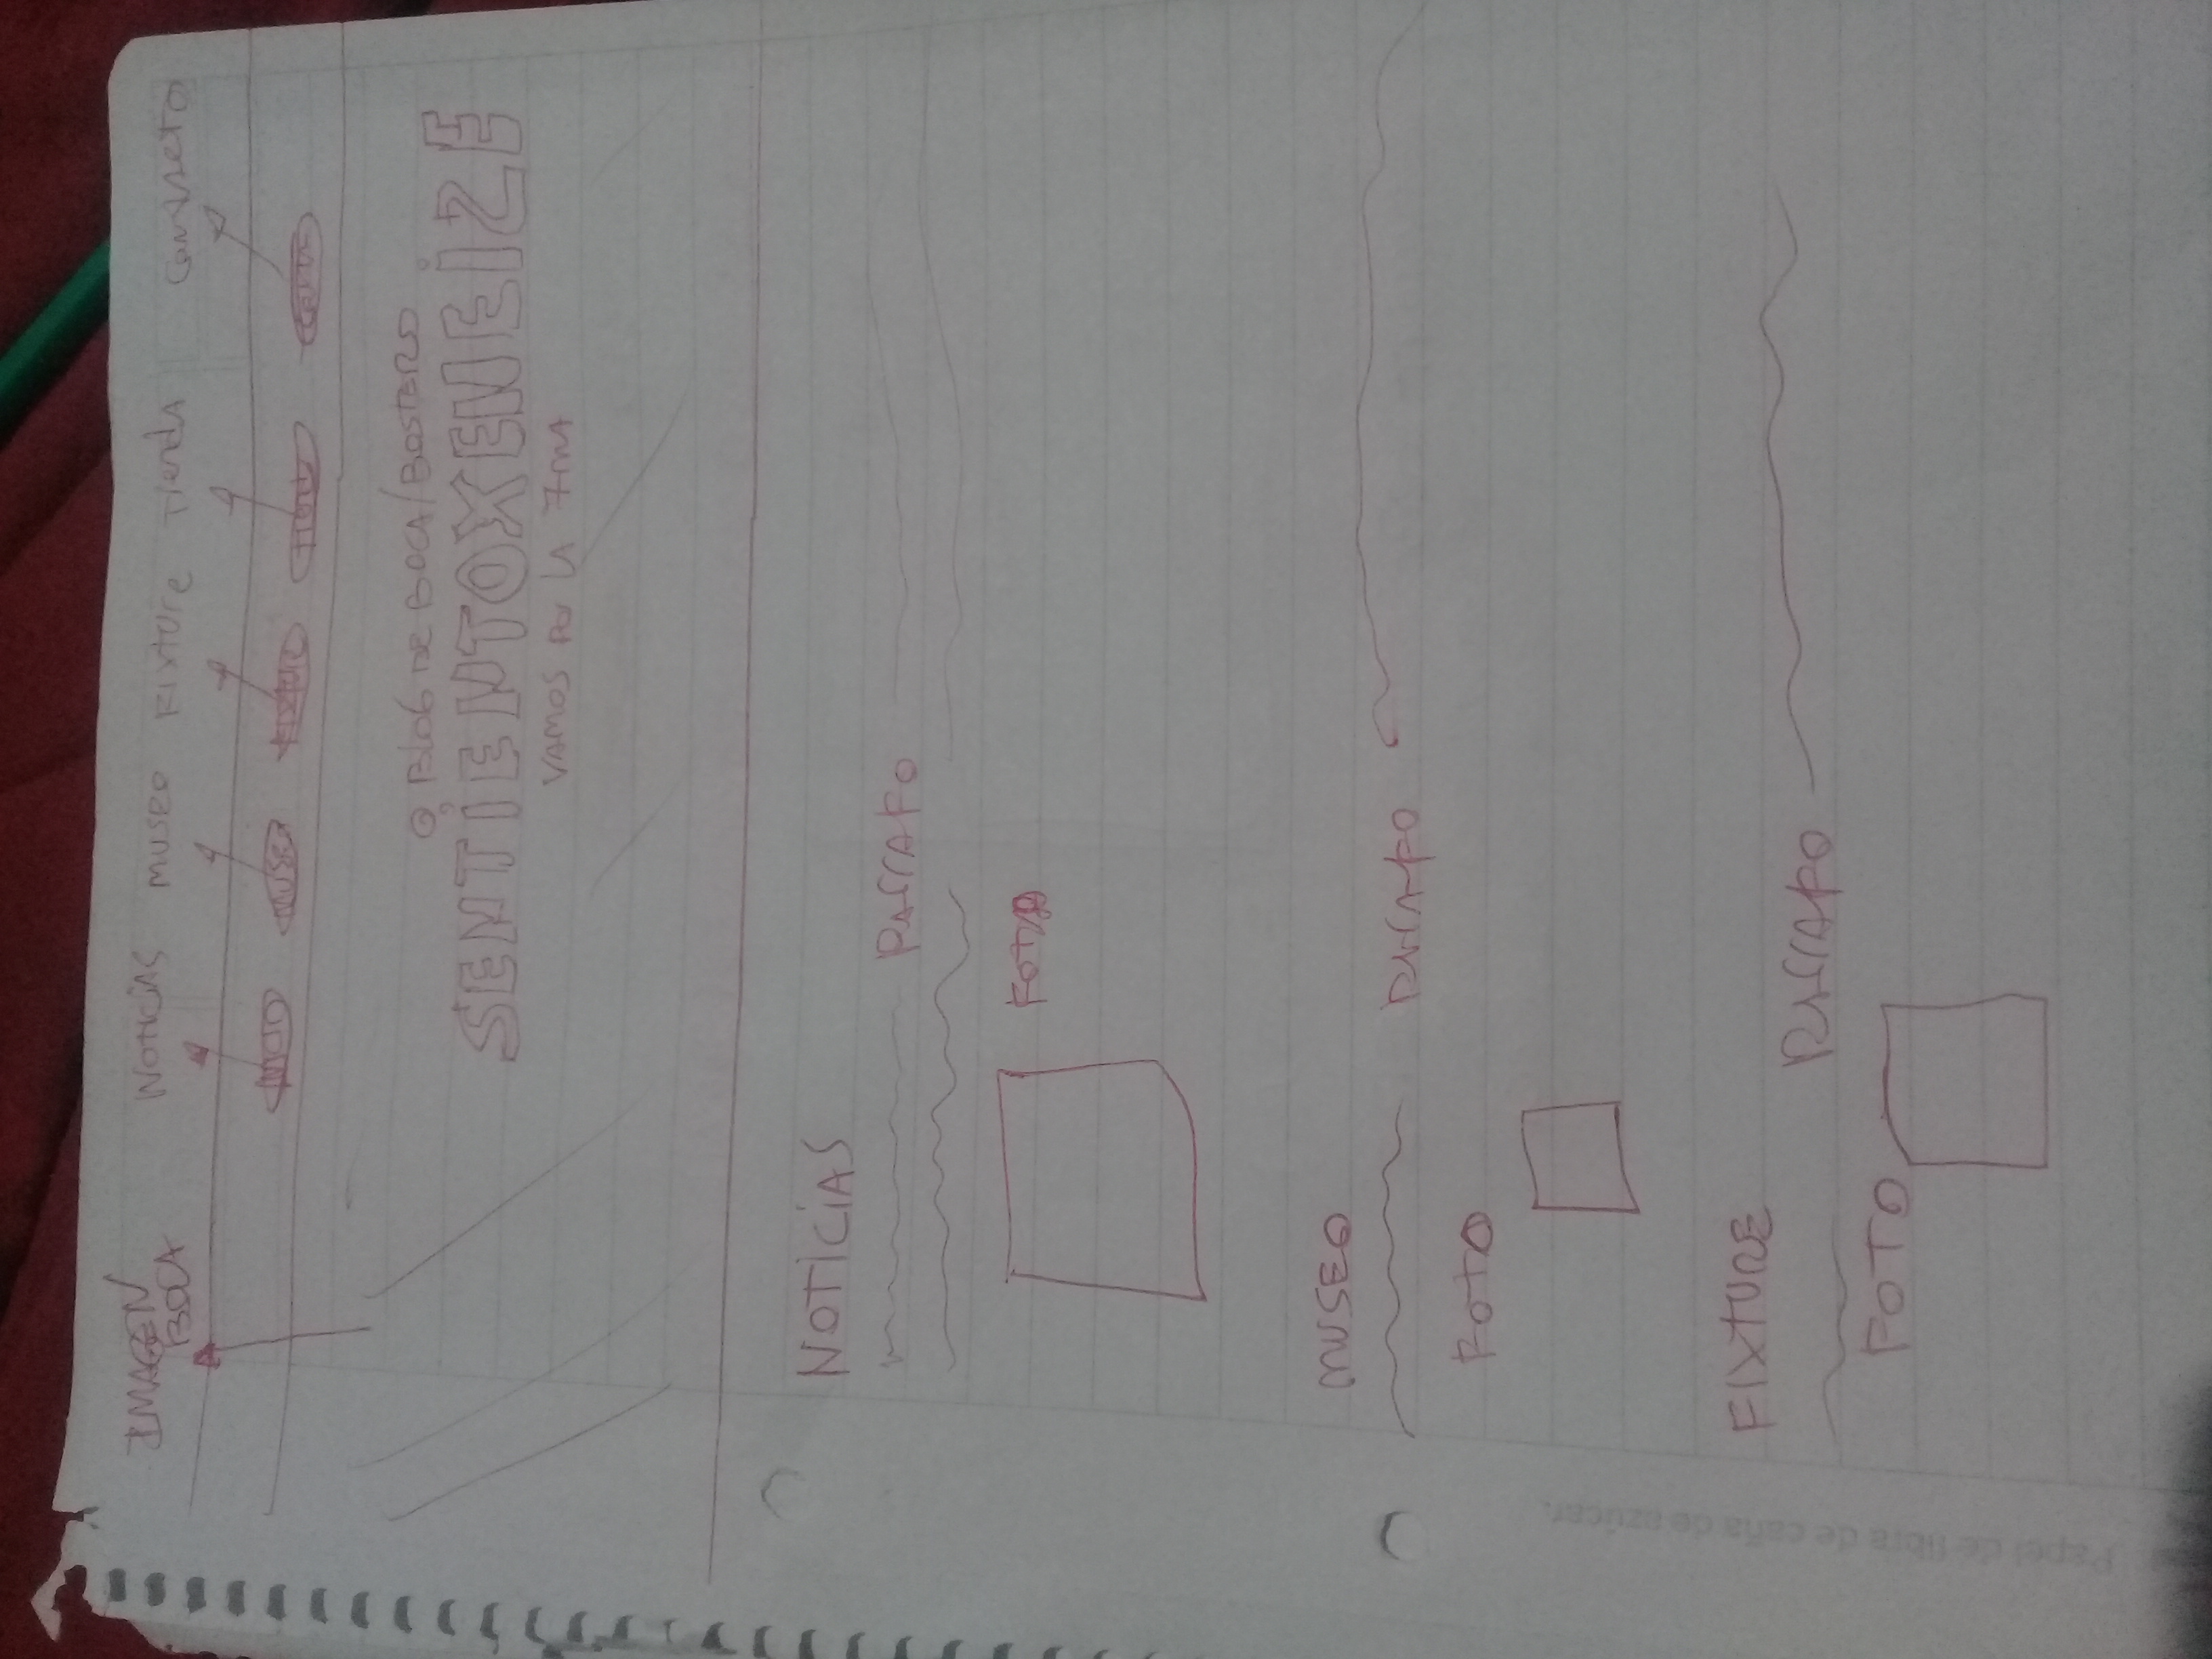 IMAGEN
BOCA
Noticias museo Fixture Tienda Contacto
museo Fixture
Blog DE BOCA/BOSTERO
SENTIENTOXENEIZE
VAMOS POR LA 7MA
NOTICIAS
PARRAFO
FOTO
MUSEO
PARRAFO
FOTO
FIXTURE
PARRAFO
FOTO
Papel de fibra de caña de azúcar.